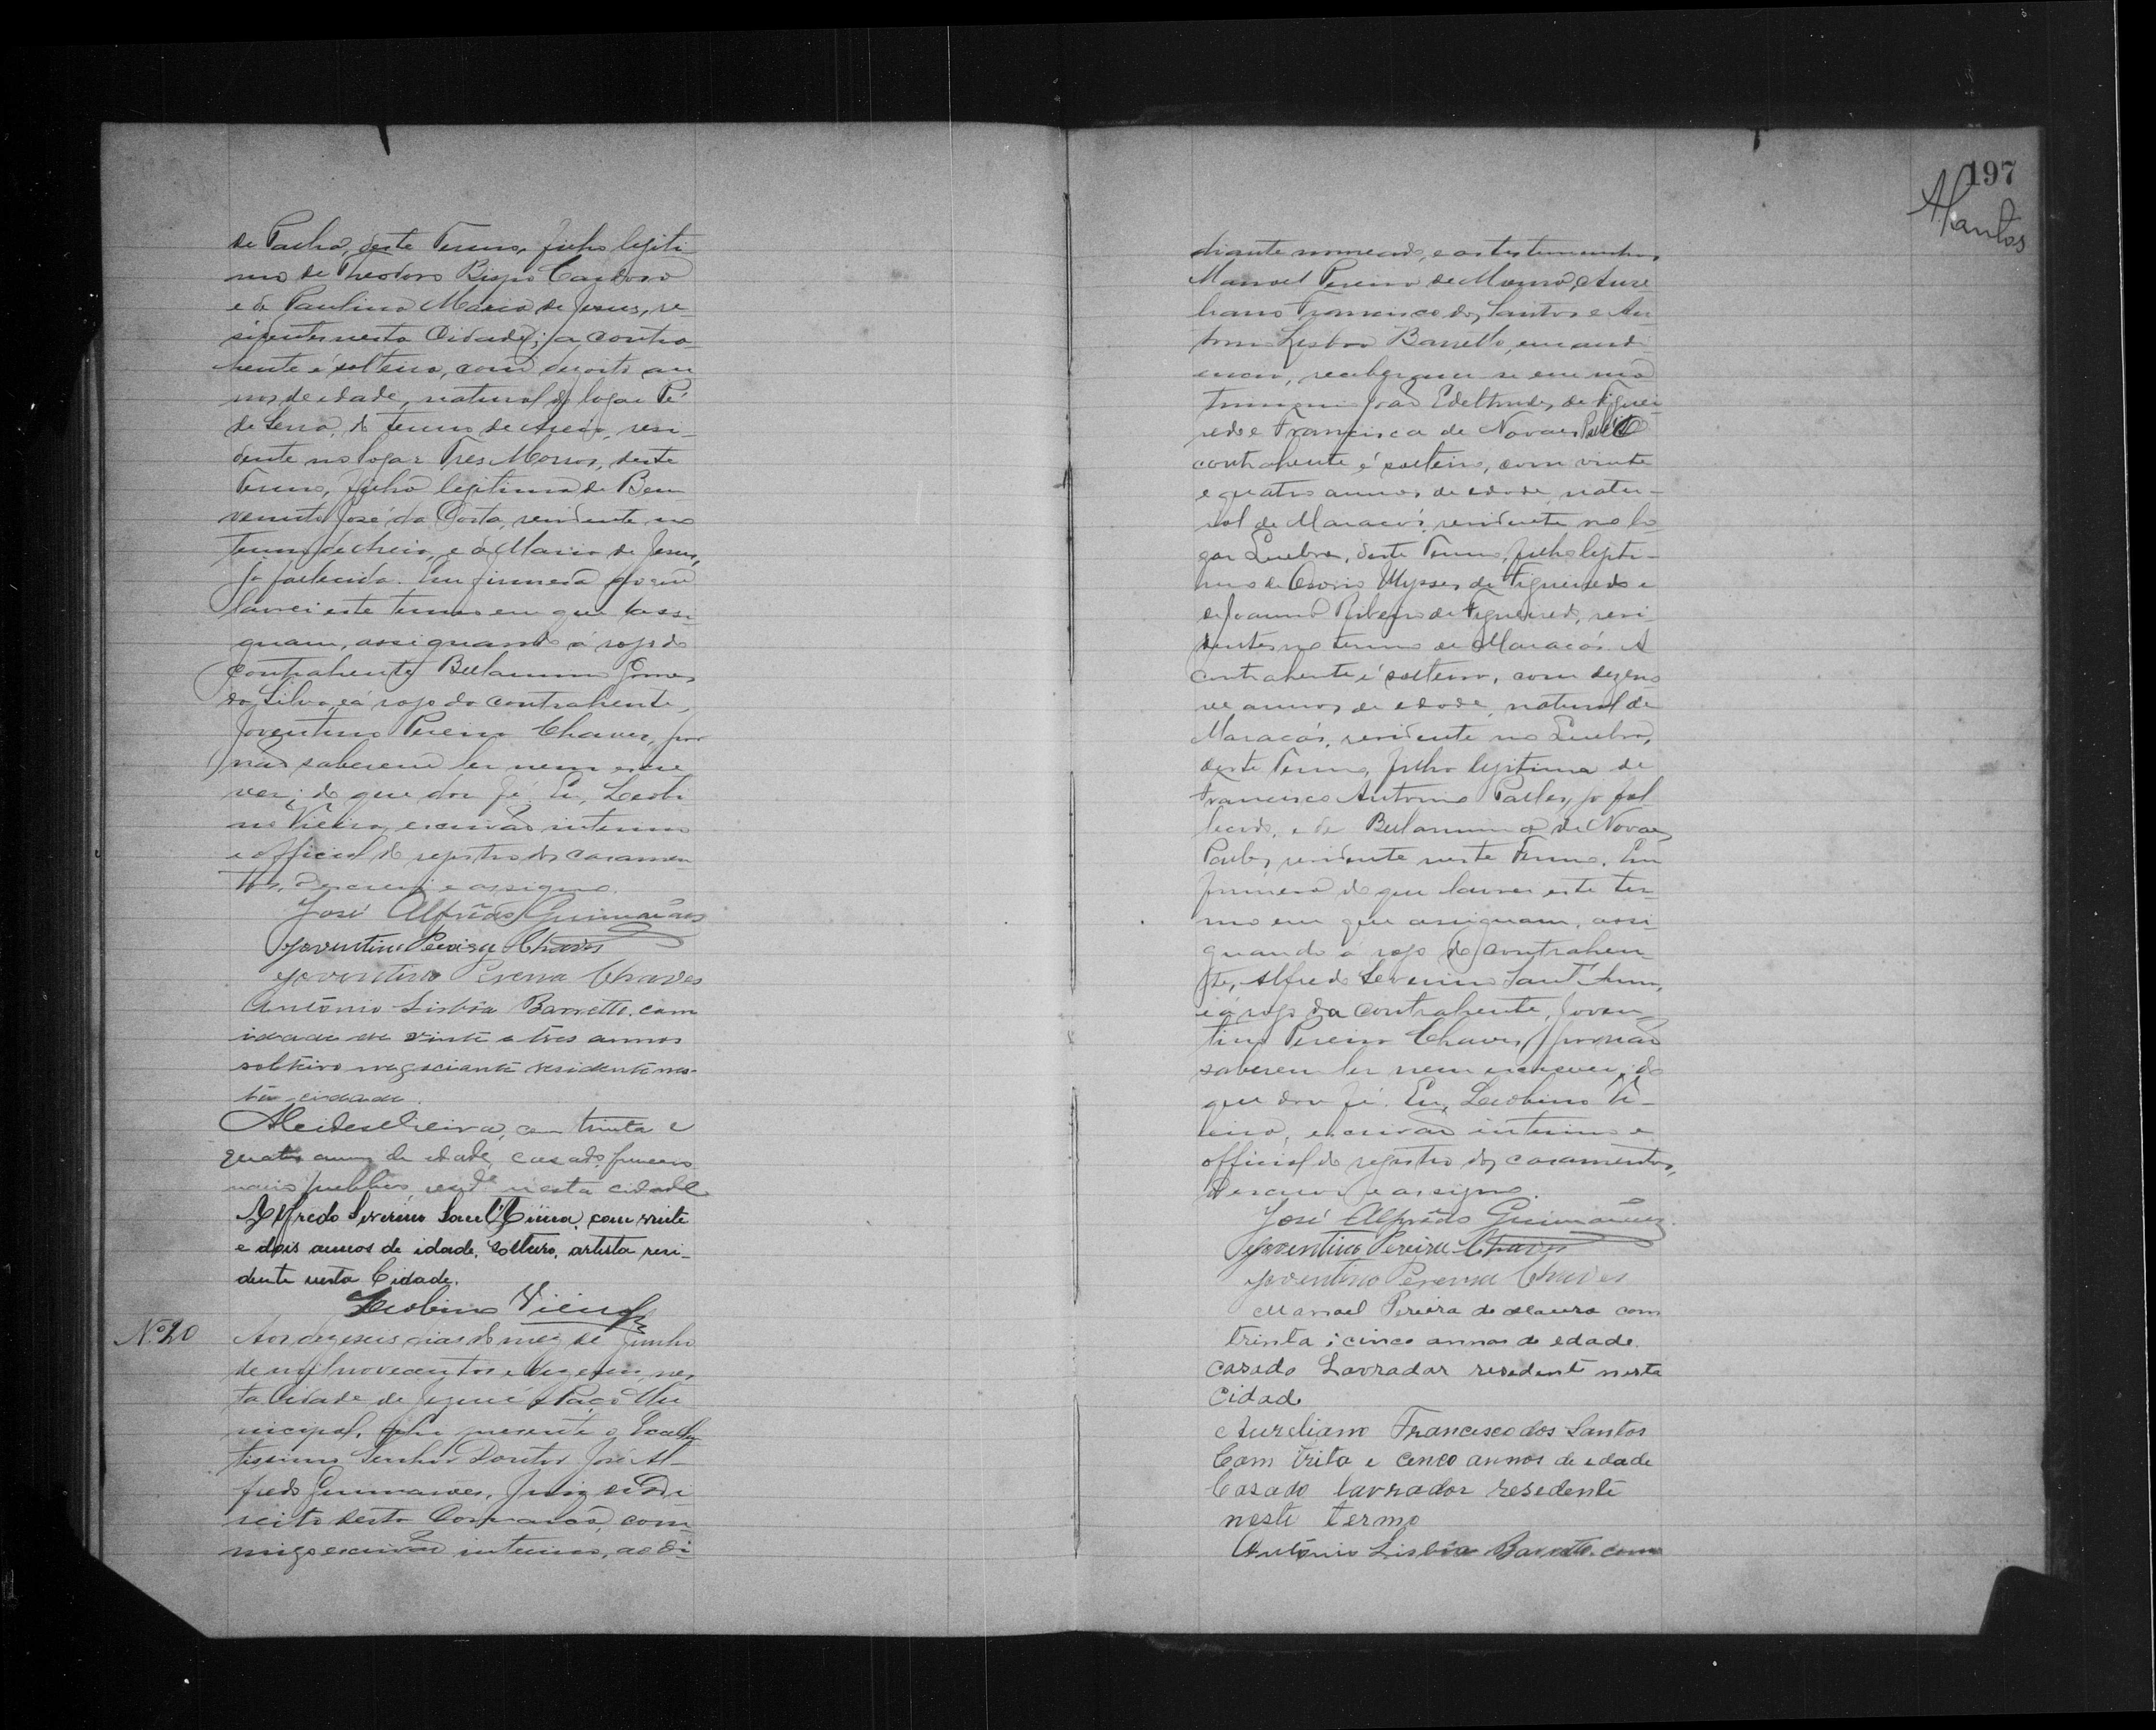 de Palha, deste Termo, filho legiti-
mo de Theodoro Bispo Cardoso
e d Paulina Maria de Jesus, re
sidentes nesta Cidade; a contra-
hente é solteira, com dezoito an
nos de idade, natural do logar Pé
de Serra, do termo de Areia, resi-
dente no logar Tres Morros, deste
Termo, filha legitima de Ben
venuto José da Costa, residente no
termo de Areia, e d Maria de Jesus,
já fallecida. Em firmesa do que
lavrei este termo em que assi-
gnam, assignando a rogo do
contrahente Bellarmino Gomes
da Silva, e á rogo da contrahente,
Joventino Pereira Chaves, por
não saberem ler nem escre
ver; do que dou fé. Eu, Leobi
no Vieira, escrivão interino
e official do registro dos casamen
tos, o escrevi e assigno.
José Alfrêdo Guimarães
Joventino Pereira Chaves
Joventino Pereira Chaves
Antônio Lisbôa Barretto, com
idade de vinte e tres annos
solteiro negociante residente nes-
ta cidade.
Alcides Vieira, com trinta e
quatro annos de idade, casado, funccio
nario publico, resid.e nesta cidade
Alfredo Severino Sant'Anna, com vinte
e dois annos de idade, solteiro, artista resi-
dente nesta Cidade.
Leobino Vieira
Nº 20
Aos dezeseis dias do mez de Junho
de mil novecentos e , nes
ta Cidade de Jequié e Paço Mu
nicipal, ahi presente o Excellen
tissimo Senhor Doutor José Al-
fredo Guimarães, Juiz de Di
reito desta Comarca, com
migo escrivão interino, ao di-
197
ASantos
diante nomeado, e as testemunhas
Manoel Pereira de Moura, Aure
liano Francisco dos Santos e An
tonio Lisboa Barretto, em audi
encia, receberam se em ma
trimonio João Edeltrudes de Figuei
redo e Francisca de Novaes O
contrahente é solteiro, com vinte
e quatro annos de edade, natu-
ral de Maracás, residente no lo
gar , deste Termo, filho legiti-
mo de Ulysses de Figueiredo e
de Joanna Ribeiro de Figueiredo, resi
dentes no termo de Maracás. A
contrahente é solteira, com dezeno
ve annos de edade, natural de
Maracás, residente no ,
deste Termo, filha legitima de
Francisco Antonio , já fal
lecido, e de Bellarmina de Novaes
, residente neste Termo. Em
firmesa do que lavrei este ter-
mo em que assignam, assi
gnando a rogo do contrahen
te, Alfredo Severino Sant'Anna,
e á rogo da contrahente, Joven
tino Pereira Chaves, por não
saberem ler nem escrever; do
que dou fé. Eu, Leobino Vi-
eira, escrivão interino e
official do registro dos casamentos,
o escrevi e assigno.
José Alfrêdo Guimarães.
Joventino Pereira Chaves
Joventino Pereira Chaves
Manoel Pereira de Moura com
trinta i cinco annos de edade.
casado Lavrador residente nesta
Cidade
Aureliano Francisco dos Santos
Com trita e cenco annos de edade
Casado lavrador resedente
neste termo
Antônio Lisbôa Barretto, com